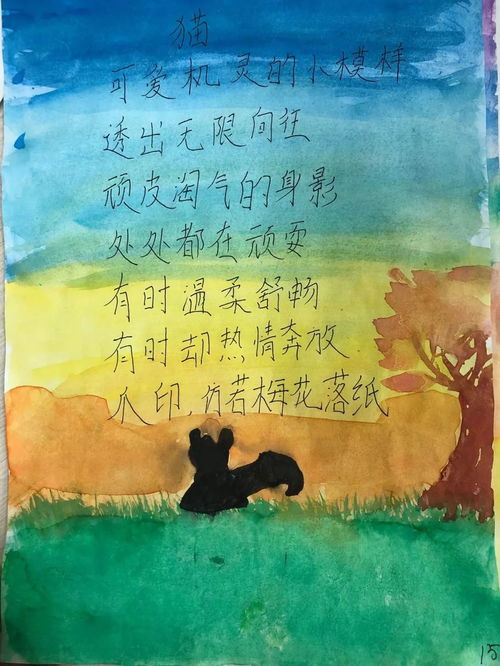 猫
可爱机灵的小模样
透出无限向往
顽皮淘气的身影
处处都在顽耍
有时温柔舒畅
有时却热情奔放
爪印,仿若梅花落纸